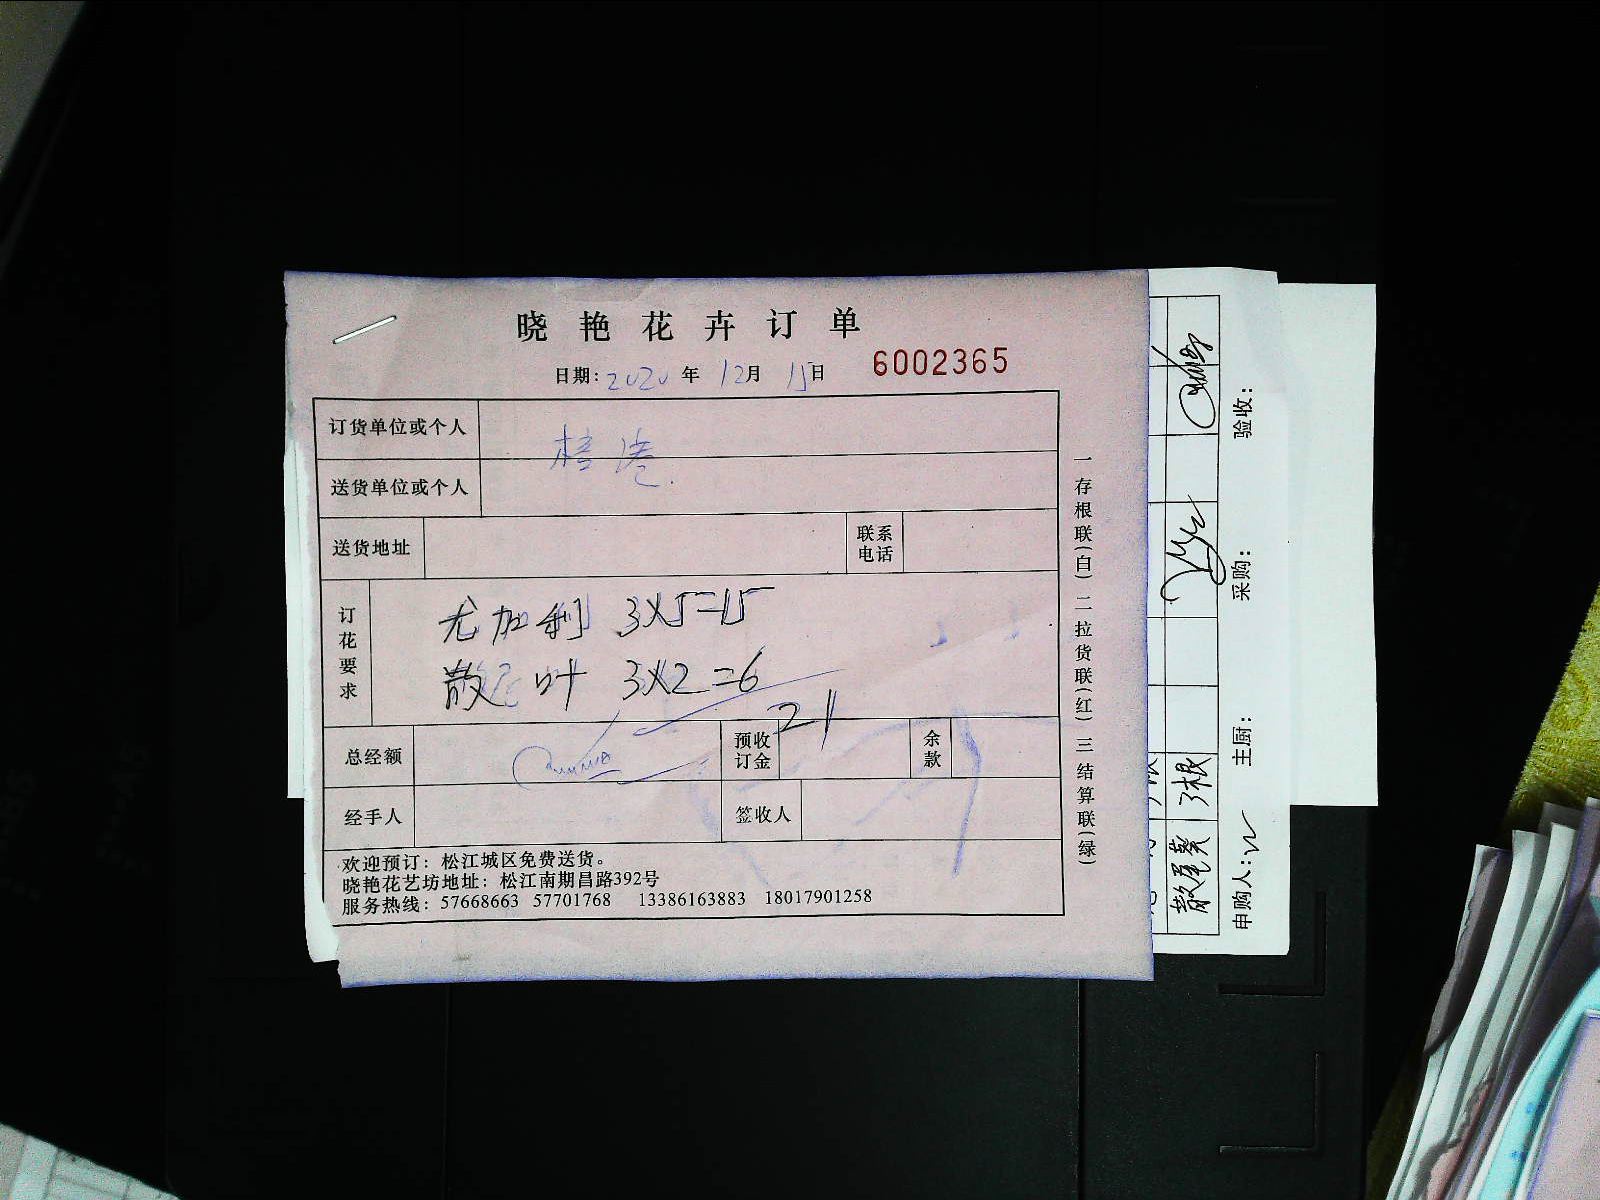 晓艳花卉订单
日期：2020年12月15日 6002365
订货单位或个人
送货单位或个人
送货地址 联系电话
订花要求
尤加利 3×5=15
散尾叶 3×2=6
21
总经额 预收订金 余款
经手人 签收人
欢迎预订：松江城区免费送货。
晓艳花艺坊地址：松江南期昌路392号
服务热线：57668663 57701768 13386163883 18017901258
一存根联(白) 二拉货联(红) 三结算联(绿)
散尾葵 3根
申购人： 主厨： 采购： 验收：